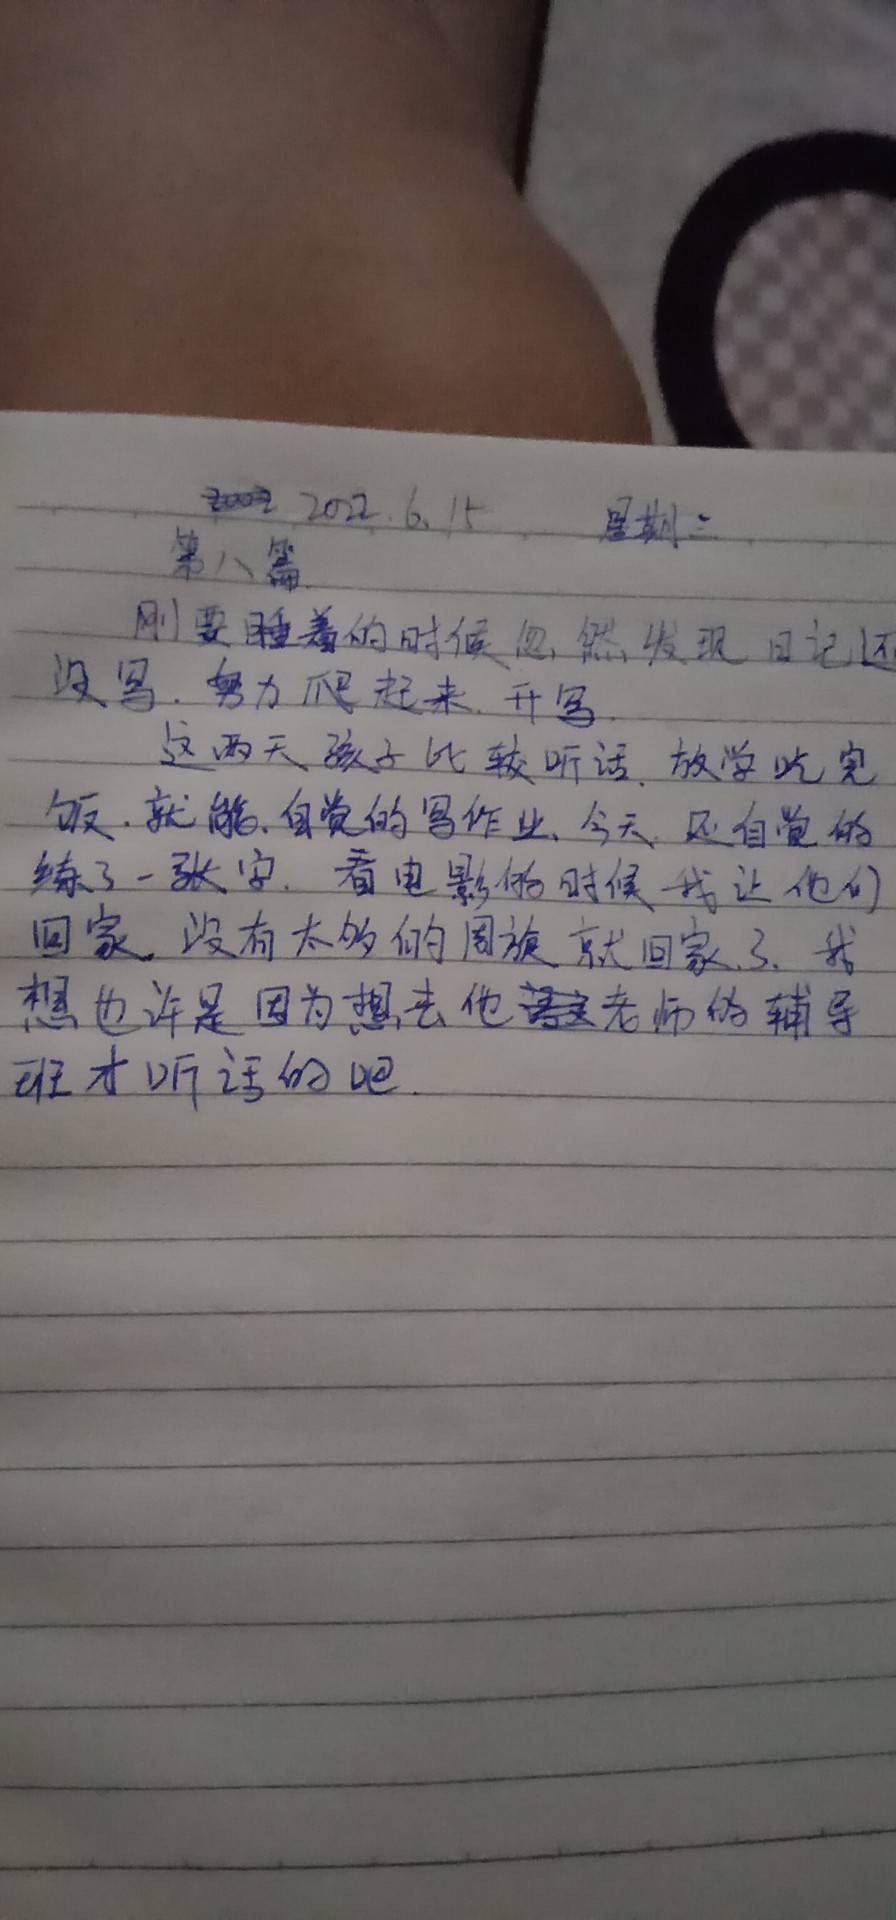 2022.6.15 星期二
第八篇
刚要睡着的时候忽然发现日记还
没写.努力爬起来.开写.
这两天孩子比较听话.放学吃完
饭.就能.自觉的写作业、今天.还自觉的
练了一张字.看电影的时候我让他们
回家.没有太多的周旋就回家.了.我
想也许是因为想去他语文老师的辅导
班才听话的吧.